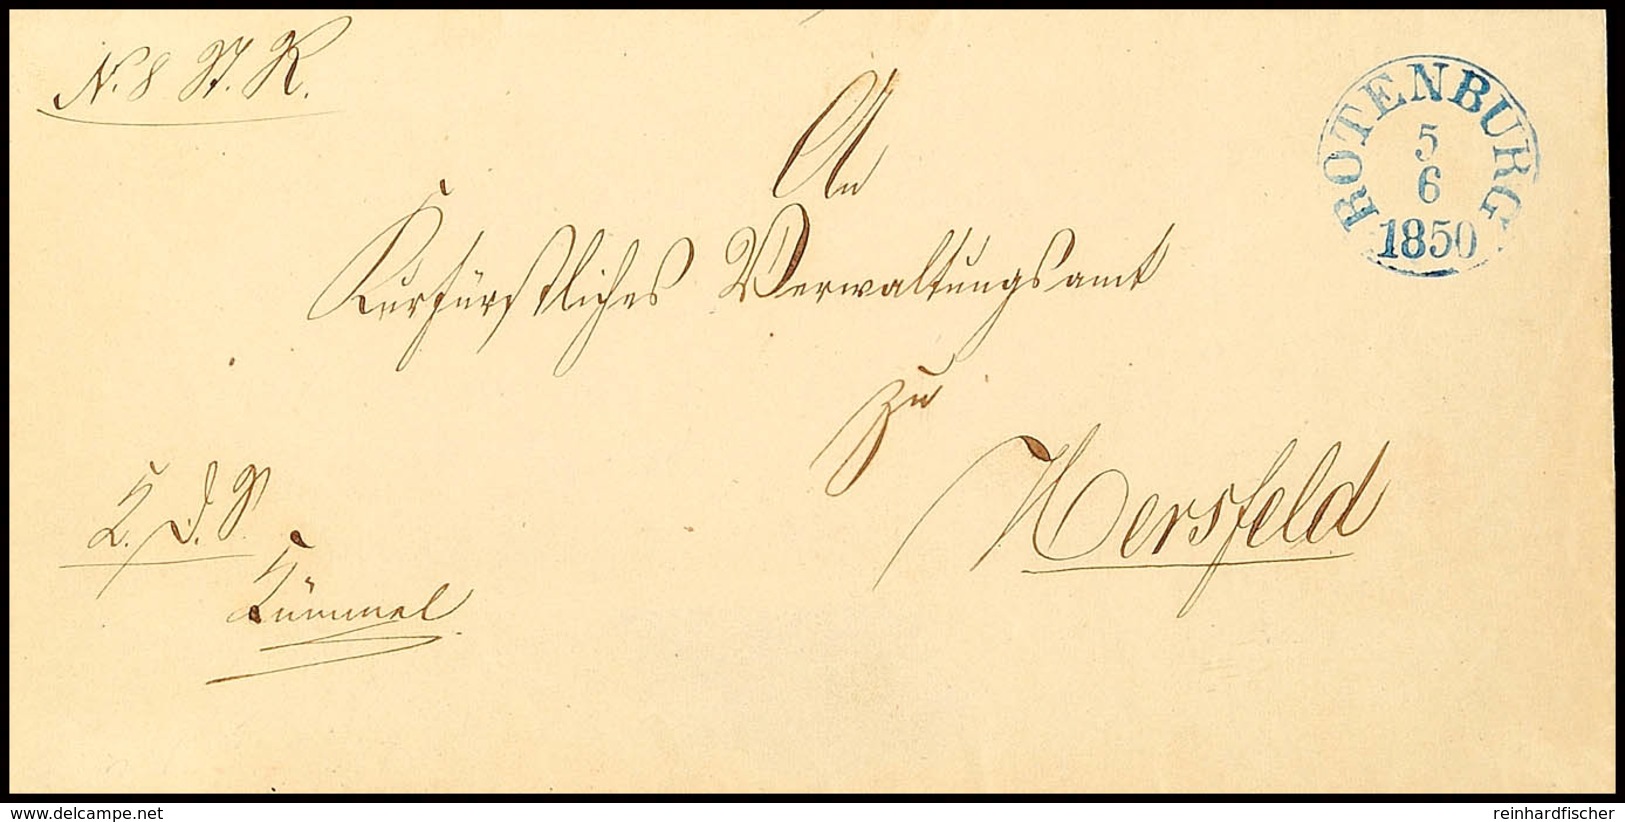 N. 8 St. R.
ROTENBURG
5
6
1850
An
Kurfürstliches Verwaltungsamt
zu
Hersfeld
K. D. S.
Kümmel
delcampe.net
reinhardfischer